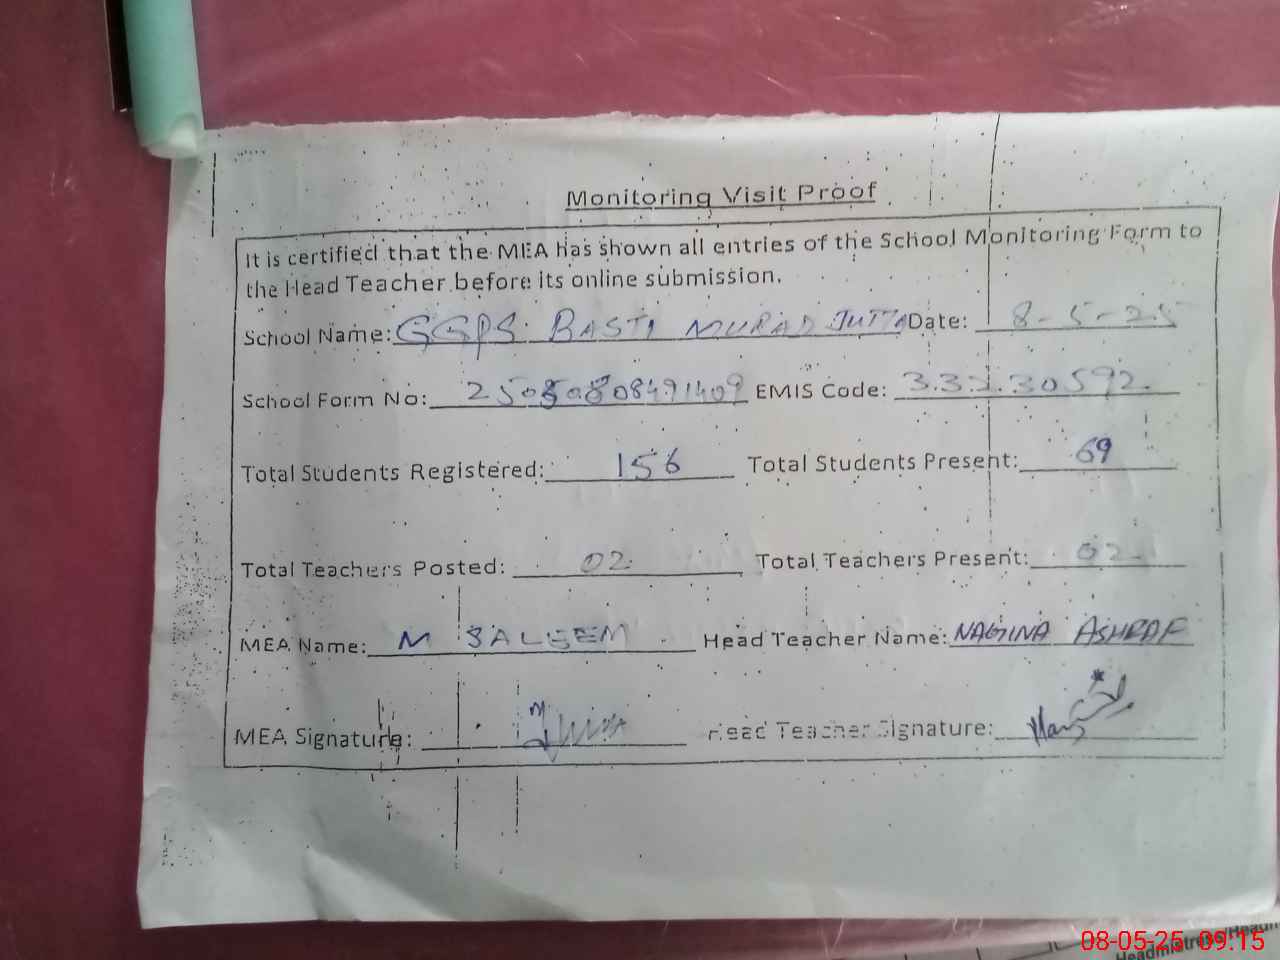 Monitoring Visit Proof
It is certified that the MEA has shown all entries of the School Monitoring Form to
the Head Teacher before its online submission.
School Name: GGPS BASTI MURAD JUTTA Date: 8-5-25
School Form No: 25050808491409 EMIS Code: 33230592
Total Students Registered: 156 Total Students Present: 69
Total Teachers Posted: 02 Total Teachers Present: 02
MEA Name: M SALEEM Head Teacher Name: NAGINA ASHRAF
MEA Signature: Head Teacher Signature:
08-05-25 09:15